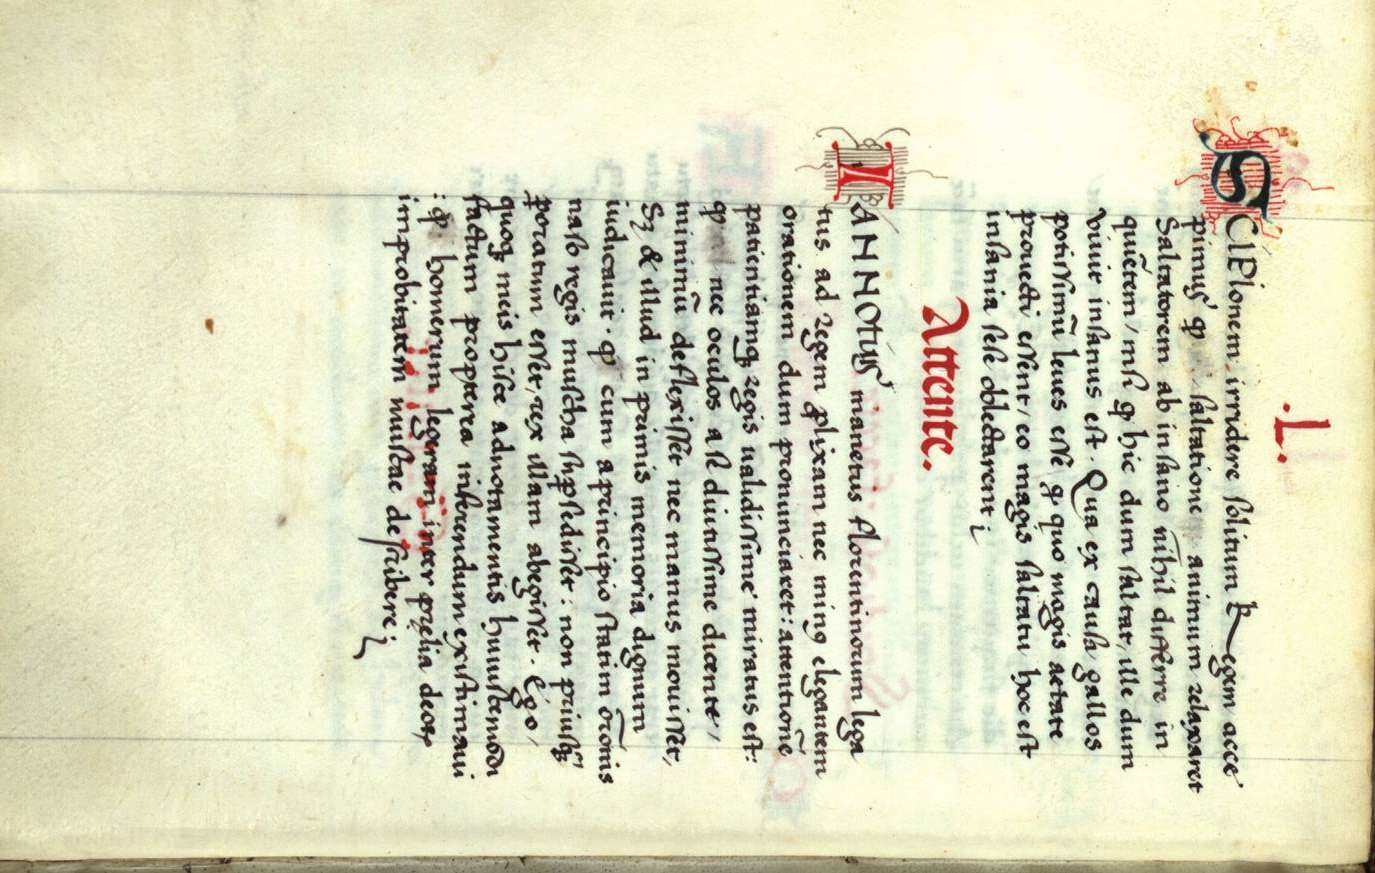 .L.
SCIPIonem irridere solitum Regem acce
pimus' ꝙ saltatione animum relaxaret
Saltatorem ab insano nihil differre in
quērem / nisi ꝙ hic dum saltat, ille dum
viuit insanus est. Qua ex causa, gallos
potissimū leues esse ꝙ quo magis aetate
prouecti essent, eo magis saltatu hoc est
insania sese oblectarent;
Attente.
IANNOtius' manetus florentinorum lega
tus. ad regem ꝓlixam nec minꝰ elegantem
orationem dum pronunciaret: attentionē
patientiamqꝫ regis ualidissime miratus est:
ꝙ nec oculos a se diutissime dicente,
minimū deflexisset nec manus mouisset,
Sꝫ & illud in primis memoria dignum
iudicauit. ꝙ cum a principio statim orōnis
naso regis muscha suꝑsedisset: non priusqꝫ
ꝑoratum esset, rex illam abegisset. Ego,
quoqꝫ meis hisce adnotamentis huiuscemodi
factum propterea inserendum existimaui
: ꝙ homerum legeram inter prelia deoꝝ
improbitatem muscae describere;